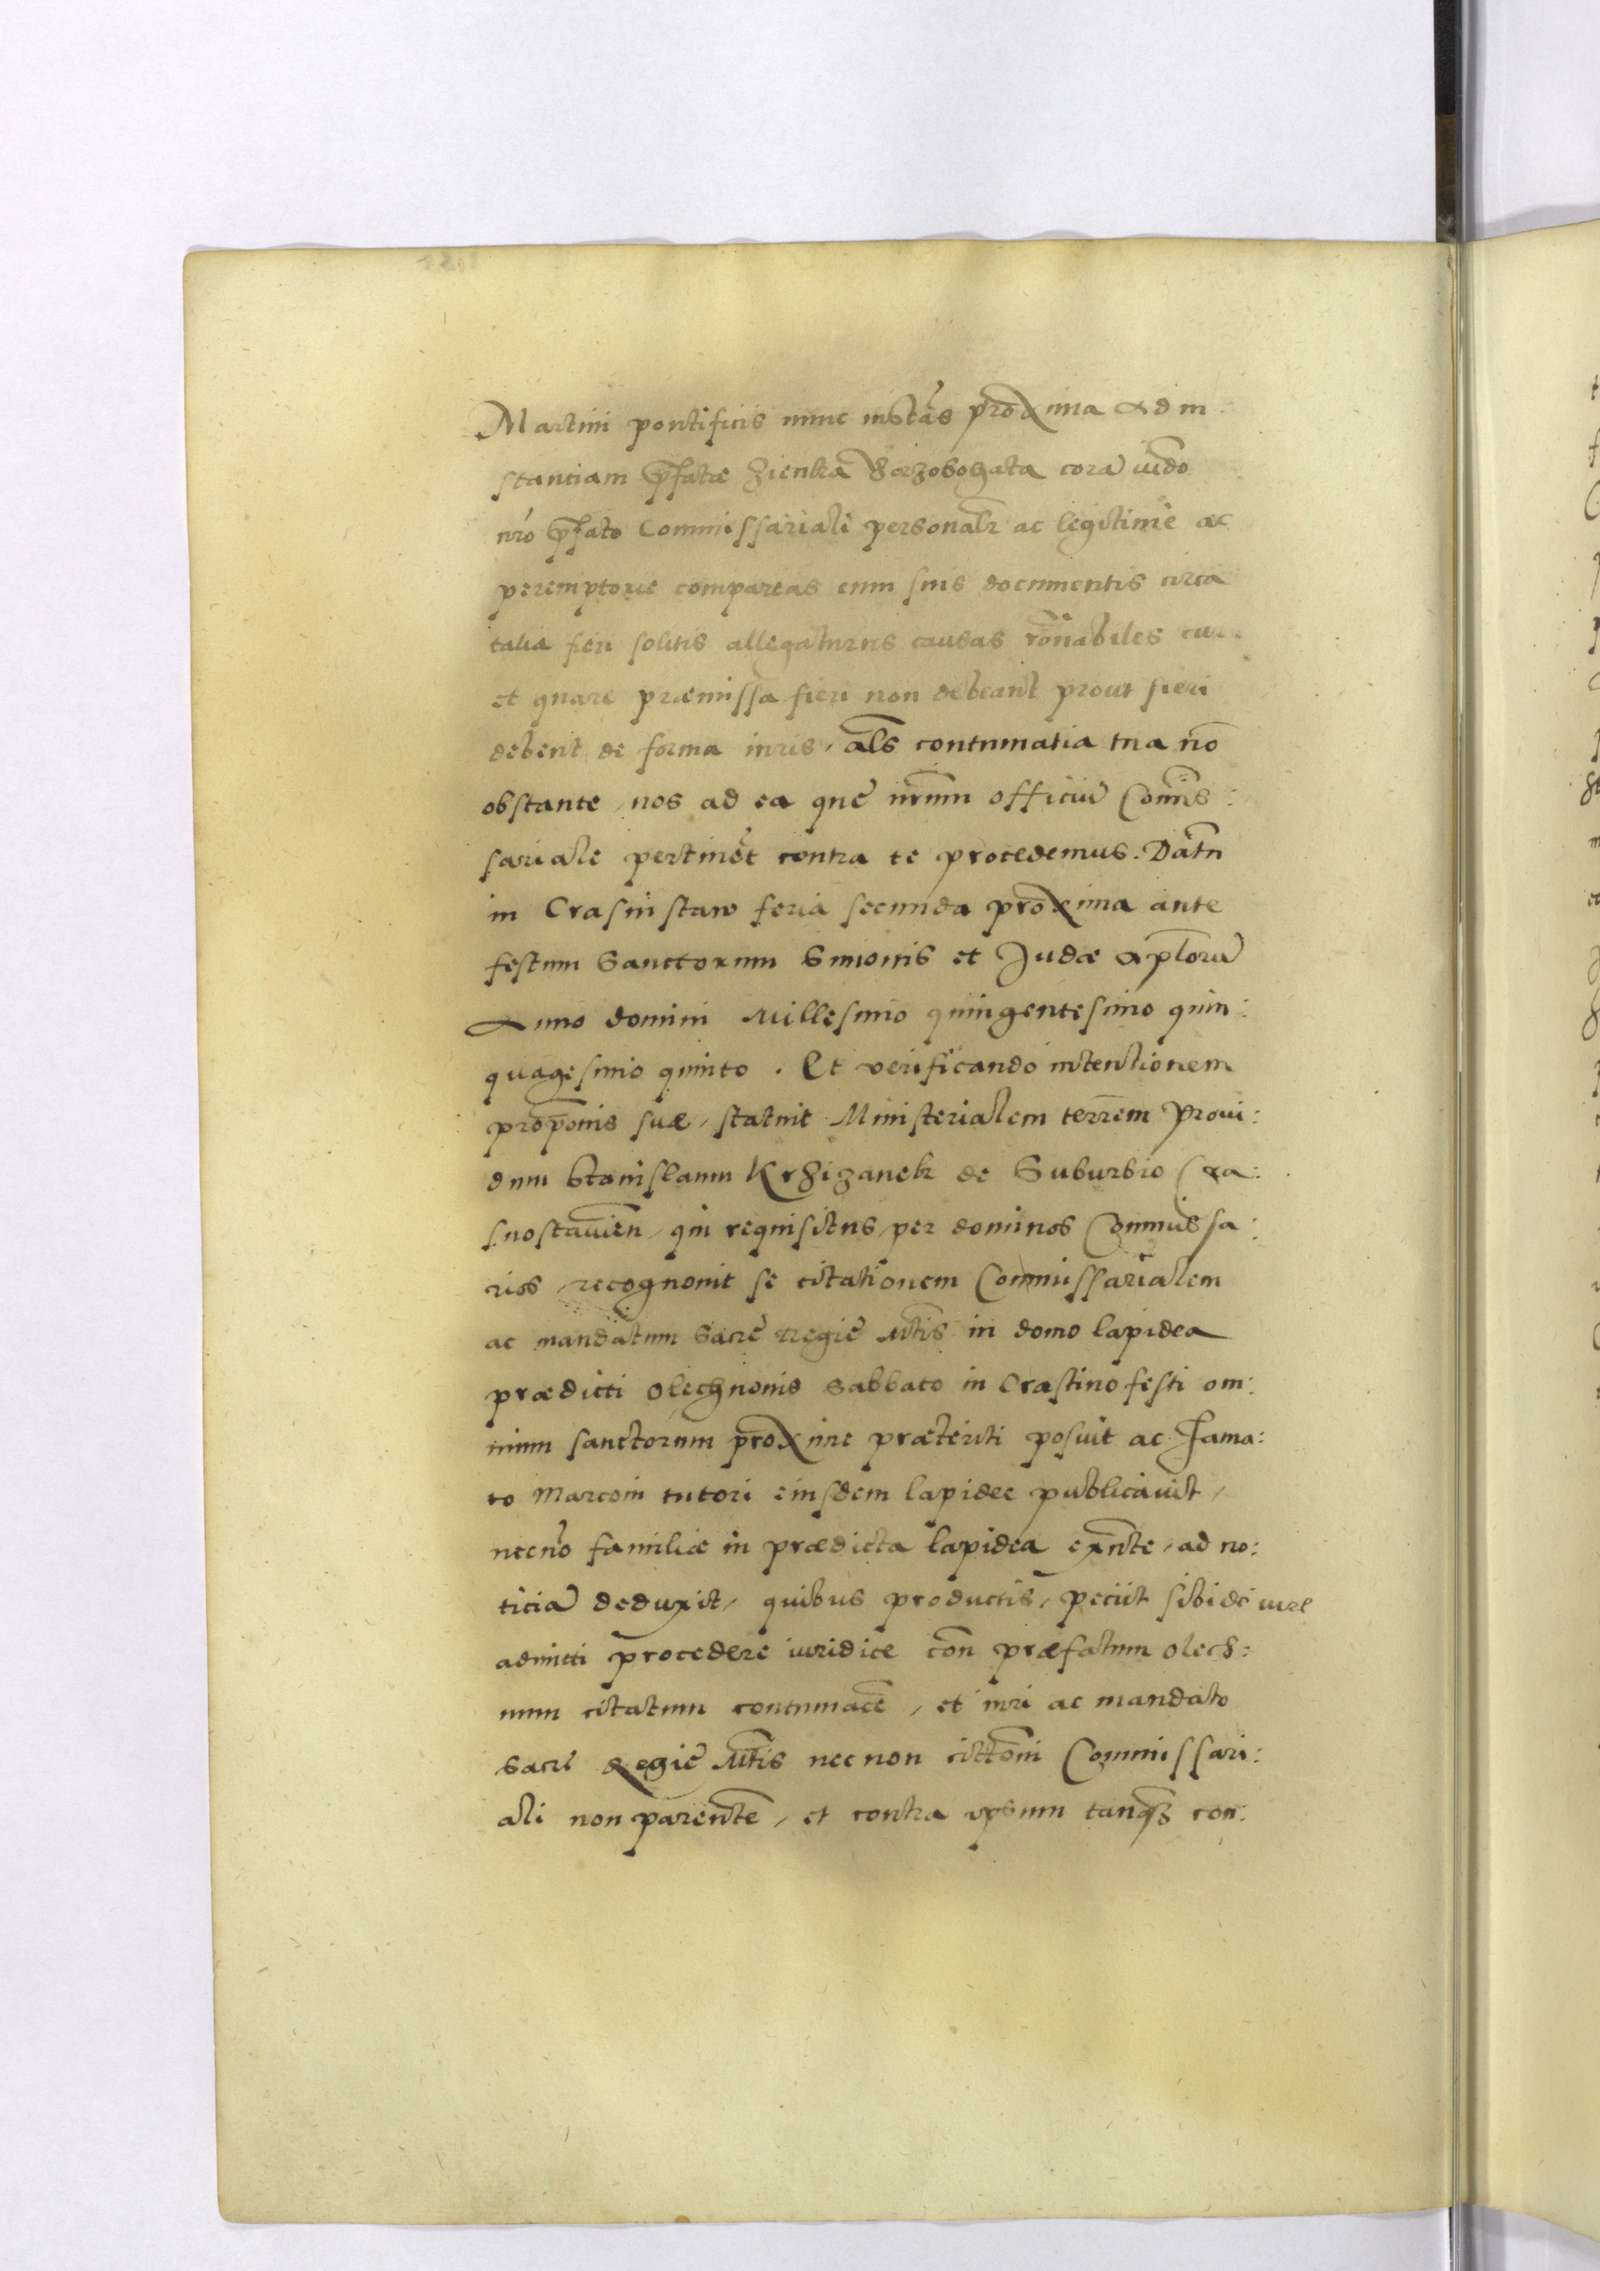 Martini pontificis nunc instãs proxima Ad in
stantiam p̃fatæ Zienka Zorzobogata corã iudõ
nrõ p̃fato Commissariali personalr̃ ac legitime ac
peremptorie compareas cum suis documentis circa
talia fieri solitis allegaturus causas rõnabiles cur
et quare præmissa fieri non debeant prout fieri
debent de forma iuris, als̃ contumatia tua nõ
obstante, nos ad ea que nrũm officiũ Com̃is:
sariale pertinẽt contra te procedemus. Datm̃
in Crasnistaw feria secunda proxima ante
festum Sanctorum Simonis et Judæ Apl̃orũ
Anno domini Millesimo quingentesimo quin:
quagesimo quinto. Et verificando intentionem
prop̃onis suæ, statuit Ministerialem terr̃em Provi:
dum Stanislaum Krzizanek de Suburbio Cra:
snostavieñ, qui requisitus, per dominos Commissa:
rios, recognouit se citationem Commissarialem
ac mandatum Sacre Regie Mt̃is in domo lapidea
prædicti Olechnonis Sabbato in Crastino festi om:
nium sanctorum proxime præteriti posuit ac Fama:
to Marcoin tutori eiusdem lapidee publicavit,
necnõ familiæ in prædicta lapidea exñte, ad no:
ticiã deduxit, quibus productis, peciit sibi de iure
admitti procedere iuridice coñ præfatum Olech:
num citatum contumacẽ, et iuri ac mandato
Sacre Regie Mt̃is necnon citt̃oni Commissari:
ali non parentẽ, et contra ipsum tanq̃ con: